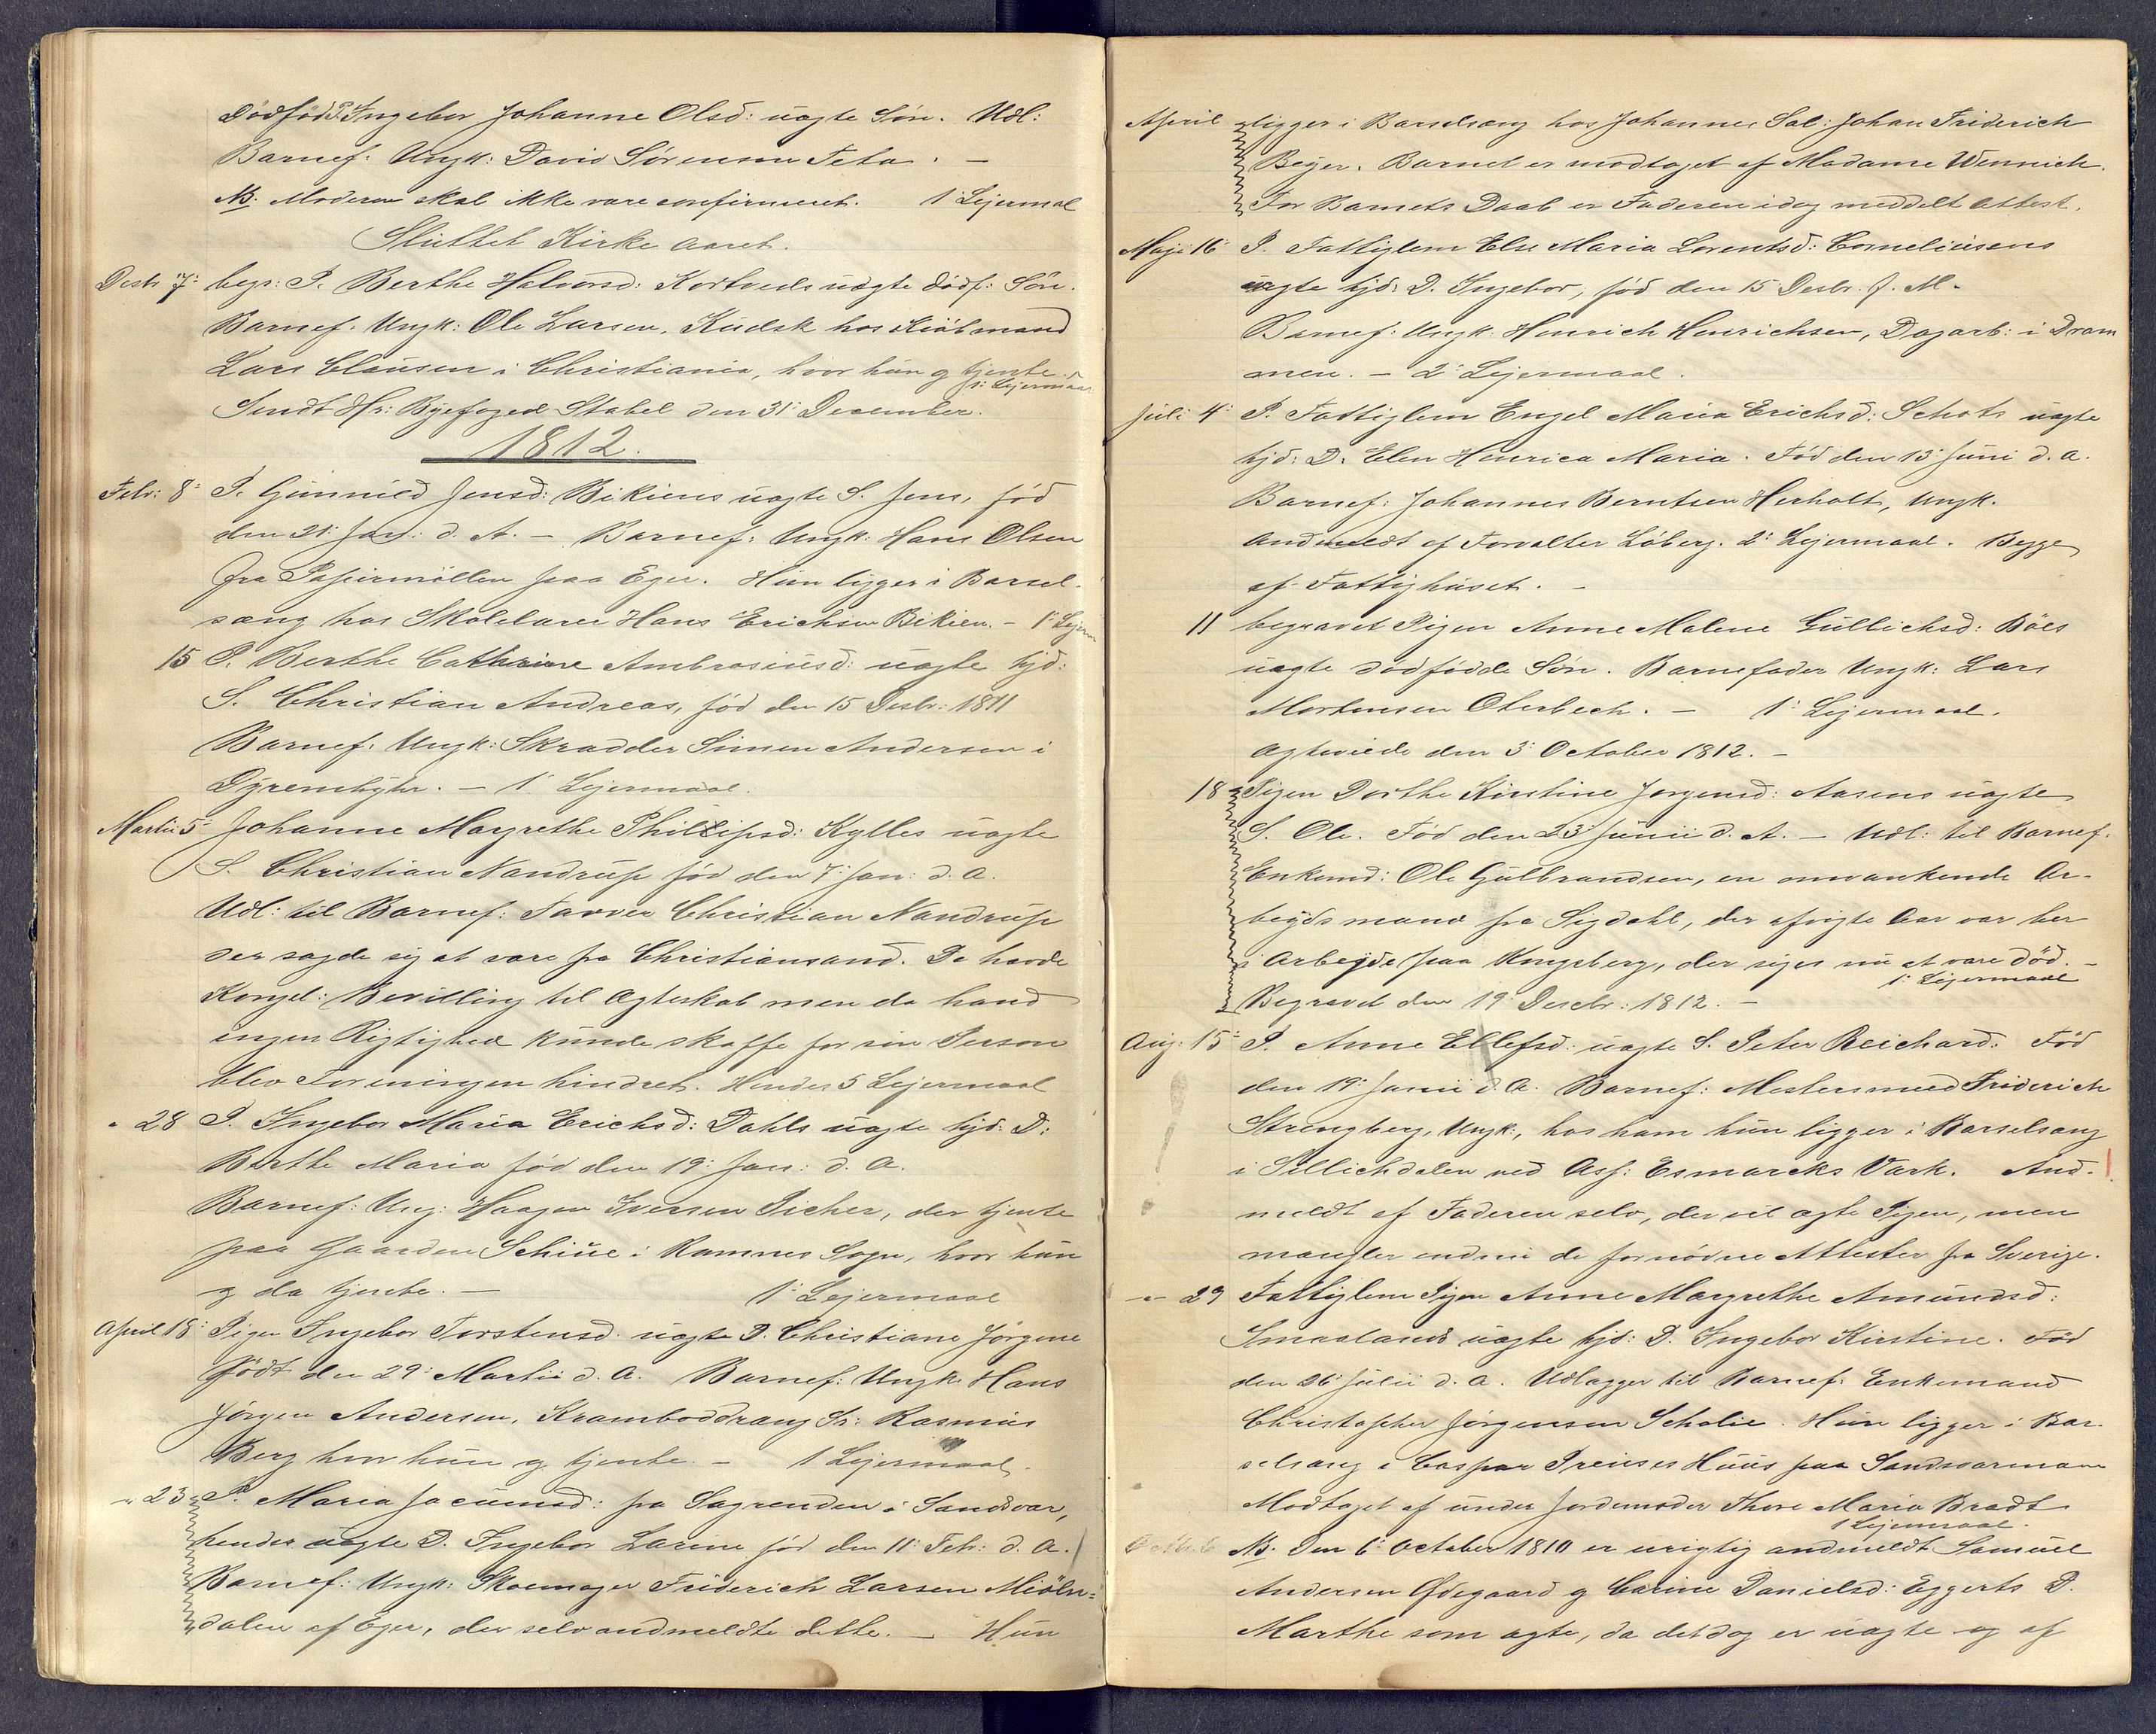 Dödföd P. Ingebor Johanne Olsd: uägte Sön. Udl:
Barnef: Ungk: David Sörensen Feta. —
NB. Moderen skal ikke være confirmeret. 1 Lejermal
Sluttet Kirke Aaret.
Desbr 7: begr: P. Berthe Halvorsd: Kortveds uägte dödf: Sön.
Barnef: Ungk: Ole Larsen, Kudsk hos Kiöbmand
Lars Clausen i Christiania, hvor hun og tjente.
1: Lejermaal
Sendt Hr: Byefoged Stabel den 31 December.
1812.
Febr: 8: P. Gunnild Jensd: Bikiens uägte S. Jens, föd
den 21: Jan: d. A. — Barnef: Ungk: Hans Olsen
fra Papirmöllen paa Eger. Hun ligger i Barsel-
sæng hos Skolelærer Hans Erichsen Bikien. — 1: Lejerm
15 P. Berthe Cathrine Ambrosiusd: uägte hjd:
S. Christian Andreas, föd den 15 Desbr: 1811
Barnef: Ungk: Skrædder Simen Andersen i
Dyremyhr. — 1 Lejermaal.
Martii 5: Johanne Margrethe Phillipsd: Kylles uägte
S. Christian Nandrup föd den 7: Jan: d. A.
Udl: til Barnef: Farver Christian Nandrup
der sagde sig at være fra Christiansand. De havde
Kongel: Bevilling til Ægteskab men da hand
ingen Rigtighed kunde skaffe for sin Person
blev Foreningen hindret. Hendes 5 Lejermaal
" 28 P. Ingebor Maria Erichsd: Dahls uägte hjd: D:
Berthe Maria föd den 19: Jan: d. A.
Barnef: Ung: Haagen Iversen Picher, der tjente
paa Gaarden Schiüe i Ramnes Sogn, hvor hun
og da tjente. — 1: Lejermaal
April 18: Pigen Ingebor Torstensd: uägte D. Christiane Jörgine
Födt den 29: Martii d. A. Barnef: Ungk: Hans
Jörgen Andersen, Kramboddräng Sr: Rasmus
Berg hvor hun og tjente. — 1 Lejermaal.
" 23 P. Maria Jacumsd: fra Sagrenden i Sandsvær,
hendes uægte D. Ingebor Larine föd den 11: Feb: d. A.
Barnef: Ungk: Skoemager Friderich Larsen Miöln=
dalen af Eger, der selv andmeldte dette. — Hun
April ligger i Barselsæng hos Johannes Sal: Johan Friderich
Beyer. Barnet er modtaget af Madame Wennich.
For Barnets Daab er Faderen idag meddelt Attest.
Maji 16 P. Fattiglem Else Maria Lorentsd: Corneliusens
uægte hjd: D. Ingebor, föd den 15 Desbr. f. A.
Barnef: Ungk: Henrich Henrichsen, Dagarb: i Dram
men. — 2: Lejermaal.
Juli 4: P. Fattiglem Engel Maria Erichsd: Schots uägte
hjd: D. Elen Henrica Maria. Föd den 13: Juni d. a.
Barnef: Johannes Berntsen Herholt, Ungk.
Andmeldt af Forvalter Löberg. 2: Lejermaal. Begge
af Fattighuset. —
11 begravet Pigen Anne Malene Gullichsd: Böes
uägte dödfödde Sön. Barnefader Ungk: Lars
Mortensen Oterbech. — 1: Lejermaal.
Ægteviede den 3: October 1812. —
18 Pigen Dorthe Kirstine Jorgensd: Aasens uägte
S. Ole. Föd den 23: Junii d. A. — Udl: til Barnef:
Enkemd: Ole Gulbrandsen, en omvankende Ar-
beyds mand fra Sigdahl, der afvigte Aar var her
i Arbeyde paa Kongsberg, der siges nu at være död. —
1: Lejermaal
Begravet den 19: Desebr: 1812. —
Aug: 15: P. Anne Ellefsd: uägte S. Peter Reichard. Föd
den 19: Junii d. A. Barnef: Mestersmed Friderich
Strengberg, Ungk:, hos ham hun ligger i Barselsæng
i Sellichdalen ved Ass: Esmarcks Værk. And-
meldt af Faderen selv, der vil ægte Pigen, men
mangler endnu de fornödne Attester fra Sverige.
" 29 Fattiglem Pigen Anne Margrethe Amundsd:
Smaalands uägte hjd: D. Ingebor Kirstine. Föd
den 26: Julii d. A. Udlægger til Barnef: Enkemand
Christopher Jörgensen Scholie. Hun ligger i Bar-
selsæng i Caspar Preuses Huus paa Sandsværmoen
Modtaget af under Jordemoder Thore Maria Bradt
1 Lejermaal.
NB. Den 6: October 1810 er urigtig andmeldt Samuel
Andersen Ödegaard og Carine Danielsd: Eggerts D.
Marthe som ægte, da det dog er uægte og af